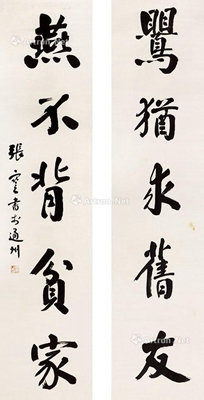 鶯猶求舊友
燕不背貧家
張謇書於通州